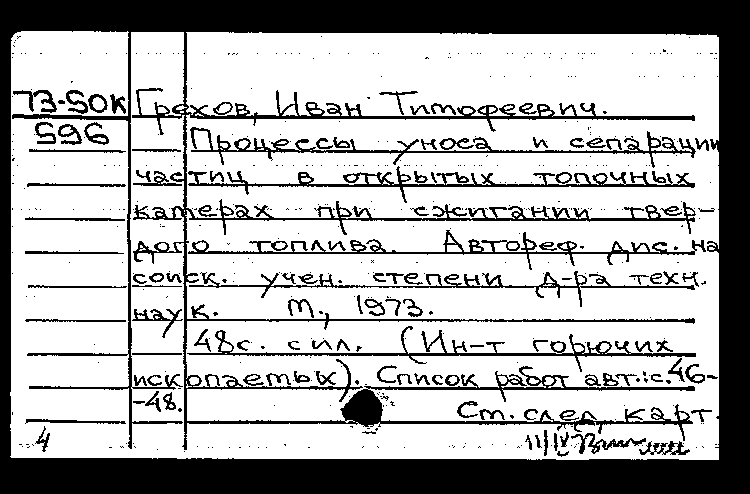 73-50к Грехов, Иван Тимофеевич.
596 Процессы уноса и сепарации
частиц в открытых топочных
камерах при сжигании твер-
дого топлива. Автореф. дис. на
соиск. учен. степени д-ра техн.
наук. М., 1973.
48с. с ил. (Ин-т горючих
ископаемых). Список работ авт.: с. 46-
-48. Ст. след. карт.
4 11/IV